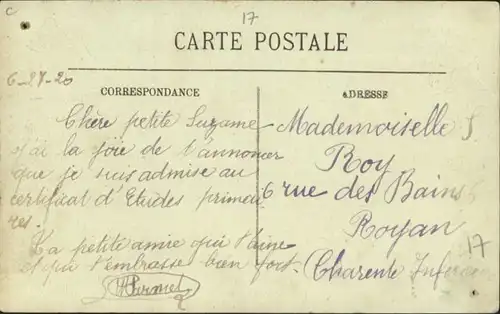 c
17
CARTE POSTALE
6-27-20
CORRESPONDANCE
Chère petite Suzanne
j'ai la joie de t'annoncer
que je suis admise au
certificat d'Etudes primai
res.
Ta petite amie qui t'aime
et qui t'embrasse bien fort.
ADRESSE
Mademoiselle S
Roy
6 rue des Bains
Royan
17
(Charente Infer